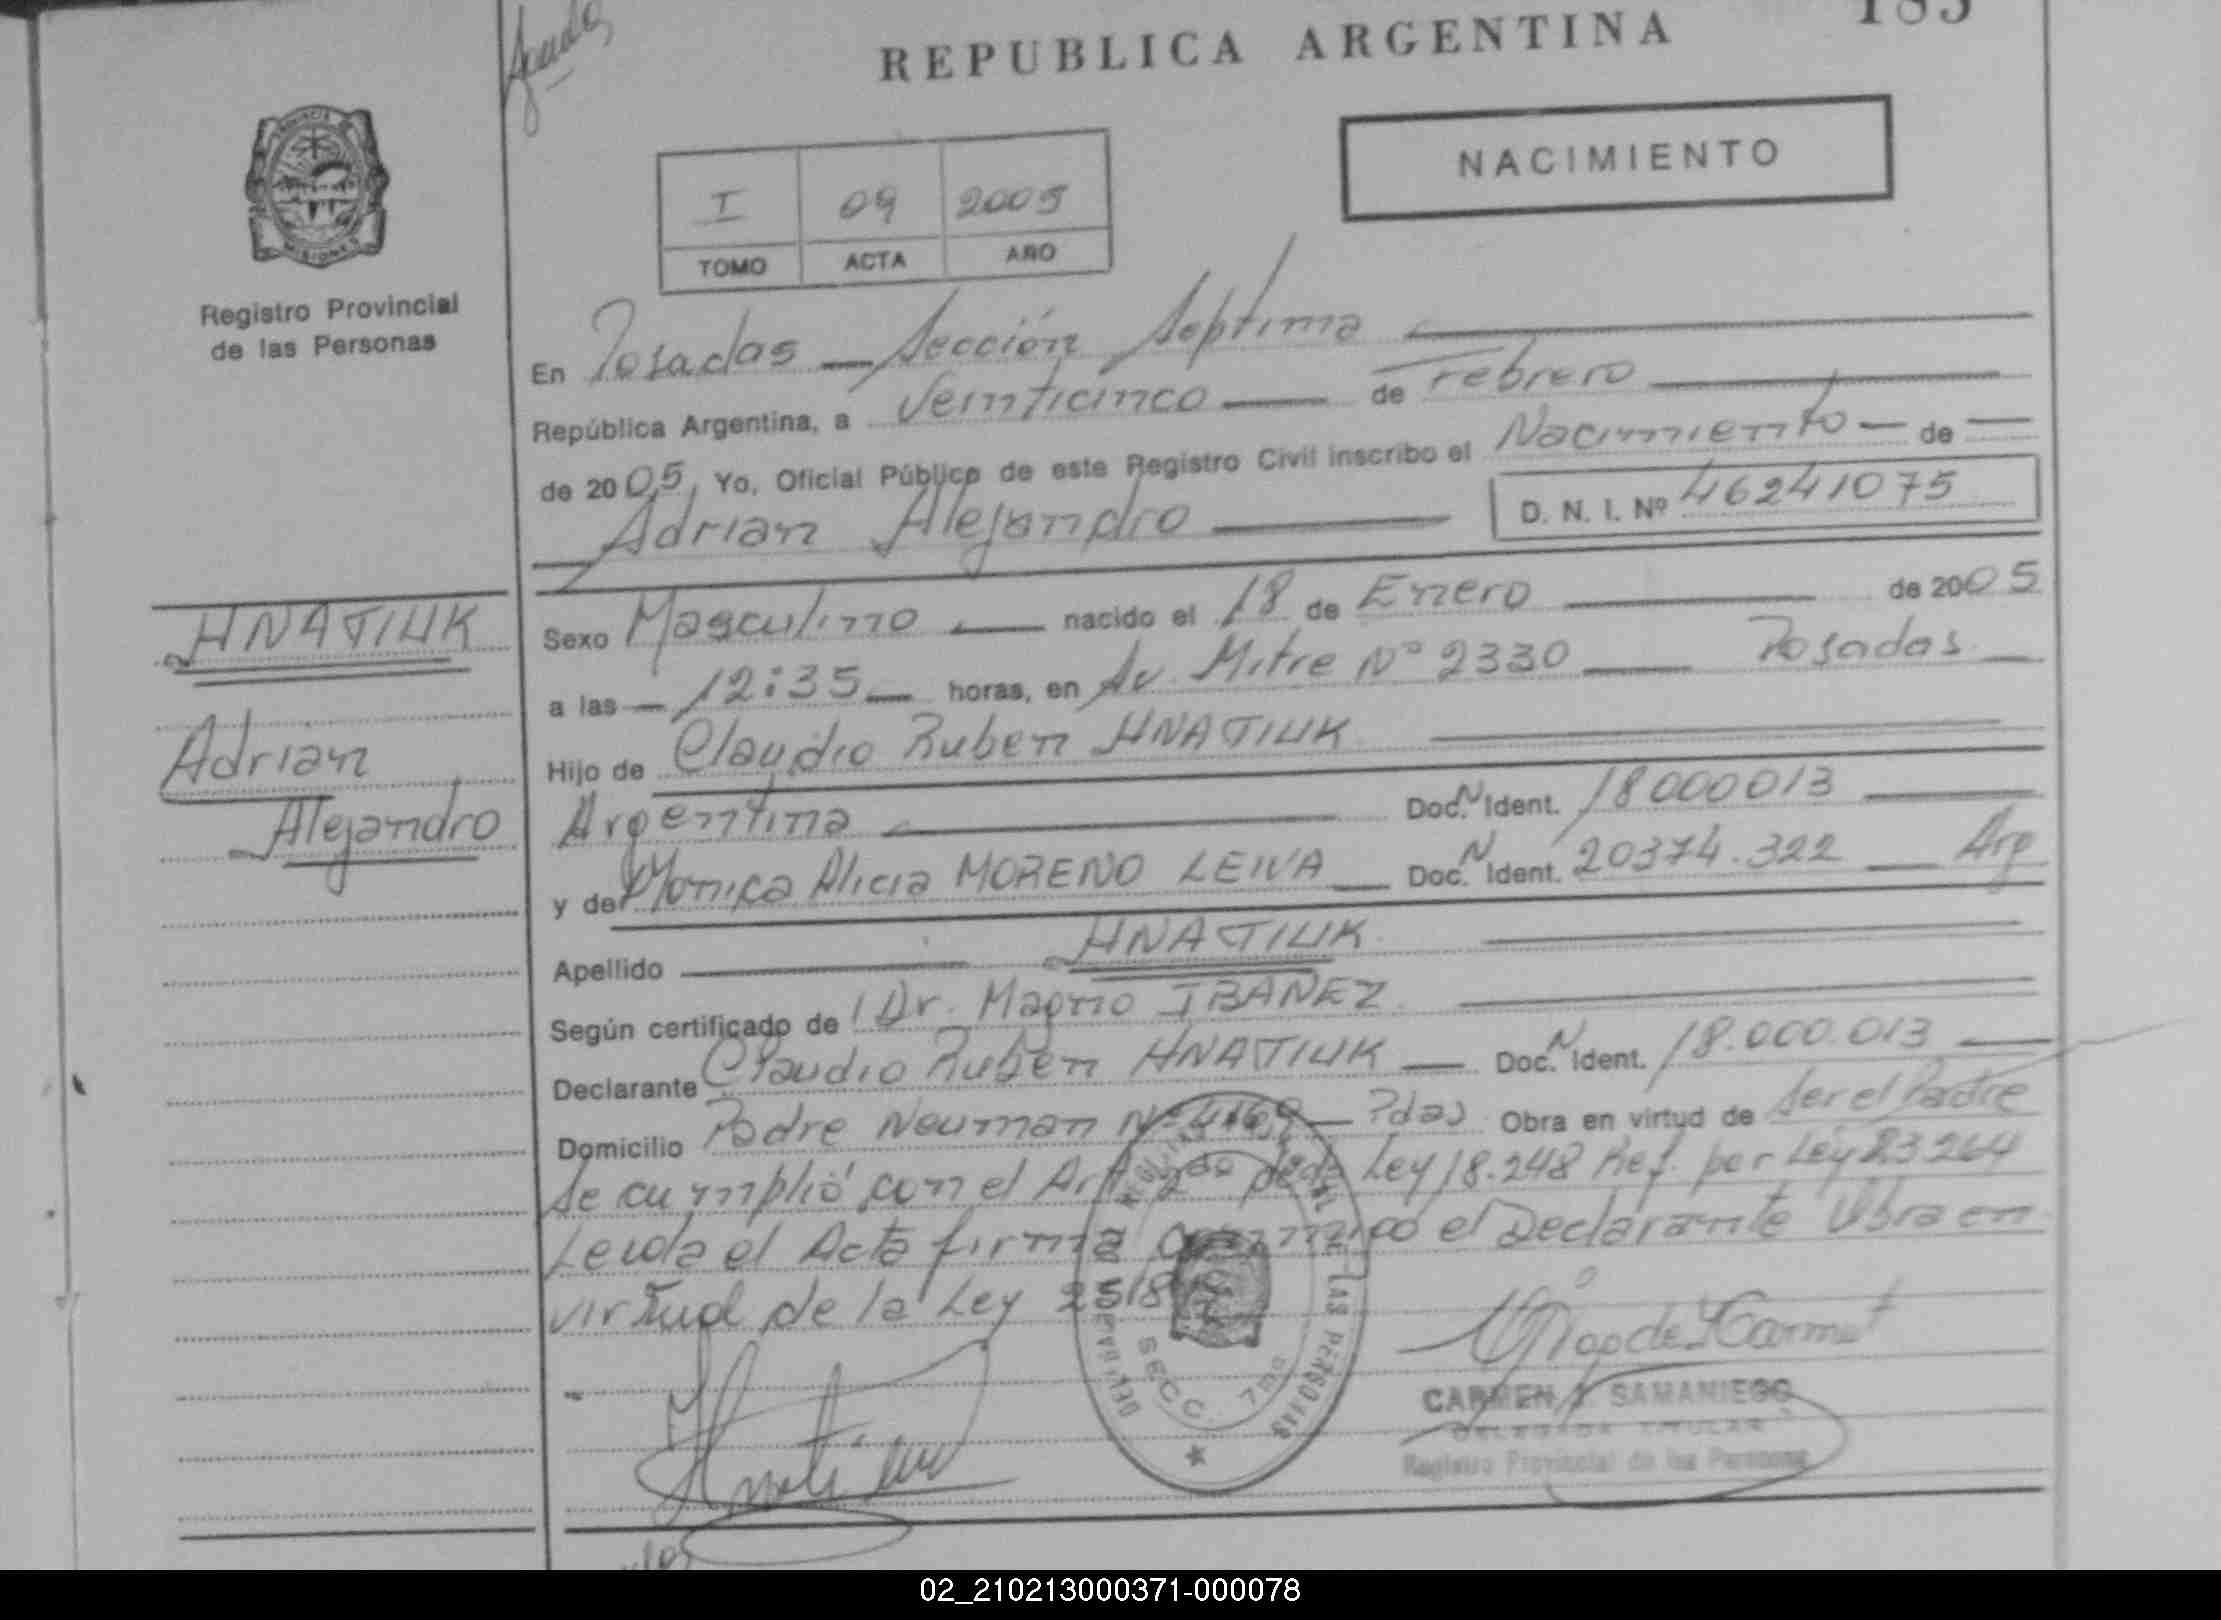 REPUBLICA ARGENTINA
185
NACIMIENTO
I 09 2005
TOMO ACTA AÑO
PROVINCIA DE
MISIONES
Registro Provincial
de las Personas
En Posadas — Sección Septima
República Argentina, a Veinticinco — de Febrero
de 2005, Yo, Oficial Público de este Registro Civil inscribo el Nacimiento — de —
Adrian Alejandro — D. N. I. Nº 46241075
HNATIUK
Adrian
Alejandro
Sexo Masculino — nacido el 18 de Enero — de 2005
a las — 12:35 — horas, en Av. Mitre Nº 2330 — Posadas —
Hijo de Claudio Ruben HNATIUK
Argentina — Doc. N Ident. 18000013 —
y de Monica Alicia MORENO LEIVA — Doc. N Ident. 20374.322 — Arg
Apellido — HNATIUK
Según certificado de Dr. Magno IBAÑEZ
Declarante Claudio Ruben HNATIUK — Doc. N Ident. 18.000.013 —
Domicilio Padre Neuman Nº 4169 — Pdas Obra en virtud de ser el Padre
Se cumplió con el Art 2do de la Ley 18.248 Ref. por Ley 23264
Leida el Acta firma conmigo el Declarante Obra en
virtud de la Ley
SECC. 7ma
DE LAS PERSONAS
CARMEN SAMANIEGO
DELEGADA TITULAR
Registro Provincial de las Personas
02_210213000371-000078